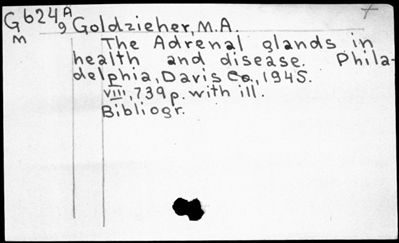 G624 A9 Goldzieher, M.A.
m
The Adrenal glands in
health and disease. Phila-
delphia, Davis Co., 1945.
VIII, 739p. with ill.
Bibliogr.